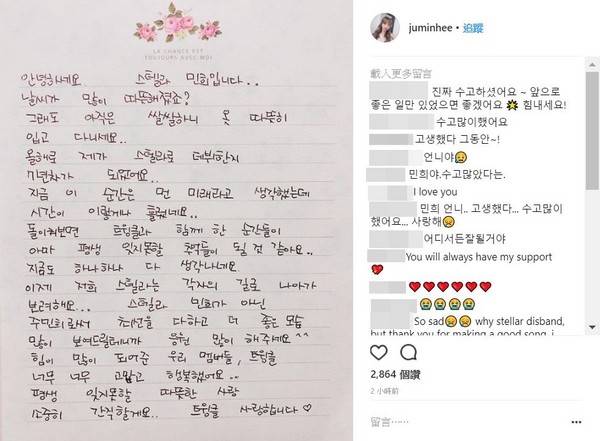 LA CHANCE EST
TOUJOURS AVEC MOI
안녕하세요. 스텔라 민희입니다..
날씨가 많이 따뜻해졌죠?
그래도 아직은 쌀쌀하니 옷 따뜻히
입고 다니세요..
올해로 제가 스텔라로 데뷔한지
7년차가 되었어요..
지금 이 순간은 먼 미래라고 생각했는데
시간이 이렇게나 흘렀네요..
돌이켜보면 트윙클과 함께 한 순간들이
아마 평생 잊지못할 추억들이 될 것 같아요..
지금도 하나하나 다 생각나네요..
이제 저희 스텔라는 각자의 길로 나아가
보려해요.. 스텔라 민희가 아닌
주민희로서 최선을 다하고 더 좋은 모습
많이 보여드릴테니까 응원 많이 해주세요^^
힘이 많이 되어준 우리 멤버들, 트윙클
너무 너무 고맙고 행복했어요..
평생 잊지못할 따뜻한 사랑
소중히 간직할게요.. 트윙클 사랑합니다♡
juminhee • 追蹤
載入更多留言
진짜 수고하셨어요 ~ 앞으로
좋은 일만 있었으면 좋겠어요 💥 힘내세요!
수고많이했어요
고생했다 그동안~!
언니야😥
민희야.수고많았다는.
I love you
민희 언니.. 고생했다... 수고많이
했어요... 사랑해😖
어디서든잘될거야
You will always have my support
❤️
❤️❤️❤️❤️❤️❤️
😭😭😭😭
So sad😖😖 why stellar disband,
but thank you for making a good song, i
2,864 個讚
2 小時前
留言⋯⋯